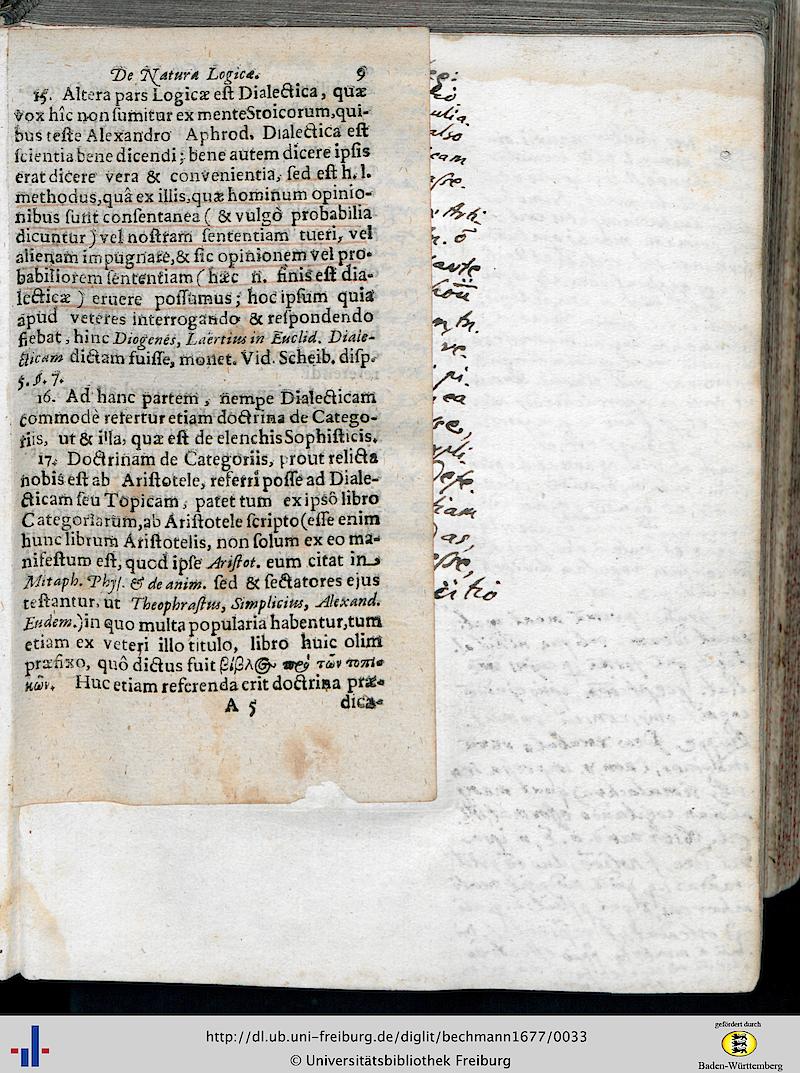 De Naturâ Logicæ. 9
15. Altera pars Logicæ est Dialectica, quæ
vox hîc non sumitur ex mente Stoicorum, qui-
bus teste Alexandro Aphrod. Dialectica est
scientia bene dicendi; bene autem dicere ipsis
erat dicere vera & convenientia, sed est h. l.
methodus, quâ ex illis, quæ hominum opinio-
nibus sunt consentanea (& vulgò probabilia
dicuntur) vel nostram sententiam tueri, vel
alienam impugnare, & sic opinionem vel pro-
babiliorem sententiam (hæc n. finis est dia-
lecticæ) eruere possumus; hoc ipsum quia
apud veteres interrogando & respondendo
fiebat, hinc Diogenes, Laërtius in Euclid. Diale-
cticam dictam fuisse, monet. Vid. Scheib. disp.
5. §. 7.
16. Ad hanc partem, nempe Dialecticam
commodè refertur etiam doctrina de Catego-
riis, ut & illa, quæ est de elenchis Sophisticis.
17. Doctrinam de Categoriis, prout relicta
nobis est ab Aristotele, referri posse ad Diale-
cticam seu Topicam, patet tum ex ipsô libro
Categoriarum, ab Aristotele scripto (esse enim
hunc librum Aristotelis, non solum ex eo ma-
nifestum est, quod ipse Aristot. eum citat in
Mitaph. Phys. & de anim. sed & sectatores ejus
testantur, ut Theophrastus, Simplicius, Alexand.
Eudem.) in quo multa popularia habentur, tum
etiam ex veteri illo titulo, libro huic olim
præfixo, quô dictus fuit βίβλος πρὸ τῶν τοπι-
κῶν. Huc etiam referenda erit doctrina præ-
A 5 dica-
http://dl.ub.uni-freiburg.de/diglit/bechmann1677/0033
© Universitätsbibliothek Freiburg
gefördert durch
Baden-Württemberg